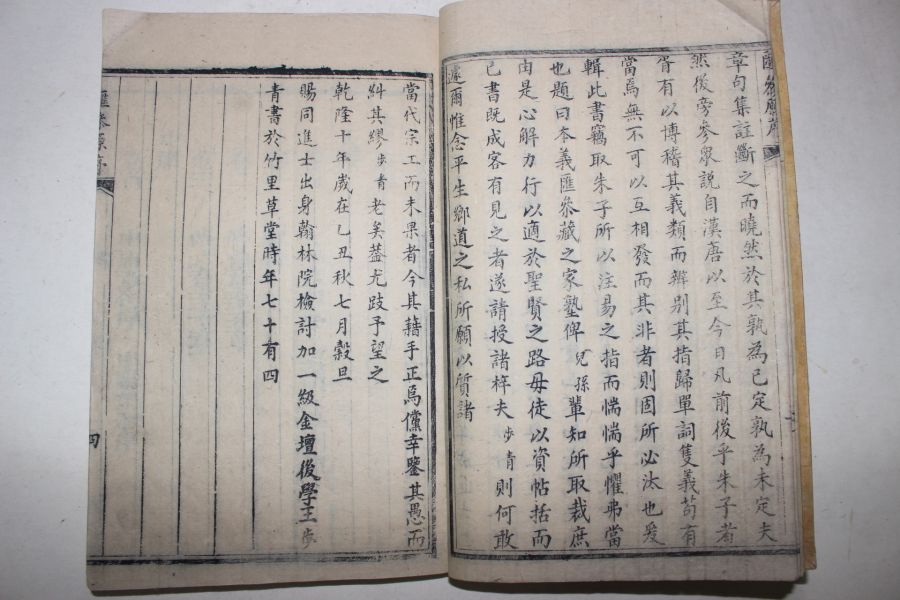 匯叅原序
章句集註斷之而曉然於其孰為已定孰為未定夫
然後旁參眾說自漢唐以至今日凡前後乎朱子者
胥有以博稽其義類而辨别其指歸單詞隻義苟有
當焉無不可以互相發而其非者則固所必汰也爰
輯此書竊取朱子所以注易之指而惴惴乎懼弗當
也題曰本義匯叅藏之家塾俾兒孫輩知所取裁庶
由是心解力行以適於聖賢之路毋徒以資帖括而
已書既成客有見之者遂請授諸梓夫步青則何敢
遽爾惟念平生鄉道之私所願以質諸
當代宗工而未果者今其藉手正焉儻幸鑒其愚而
糾其繆步青老矣葢尤跂予望之
乾隆十年歲在乙丑秋七月穀旦
賜同進士出身翰林院檢討加一級金壇後學王步
青書於竹里草堂時年七十有四
匯叅原序
四